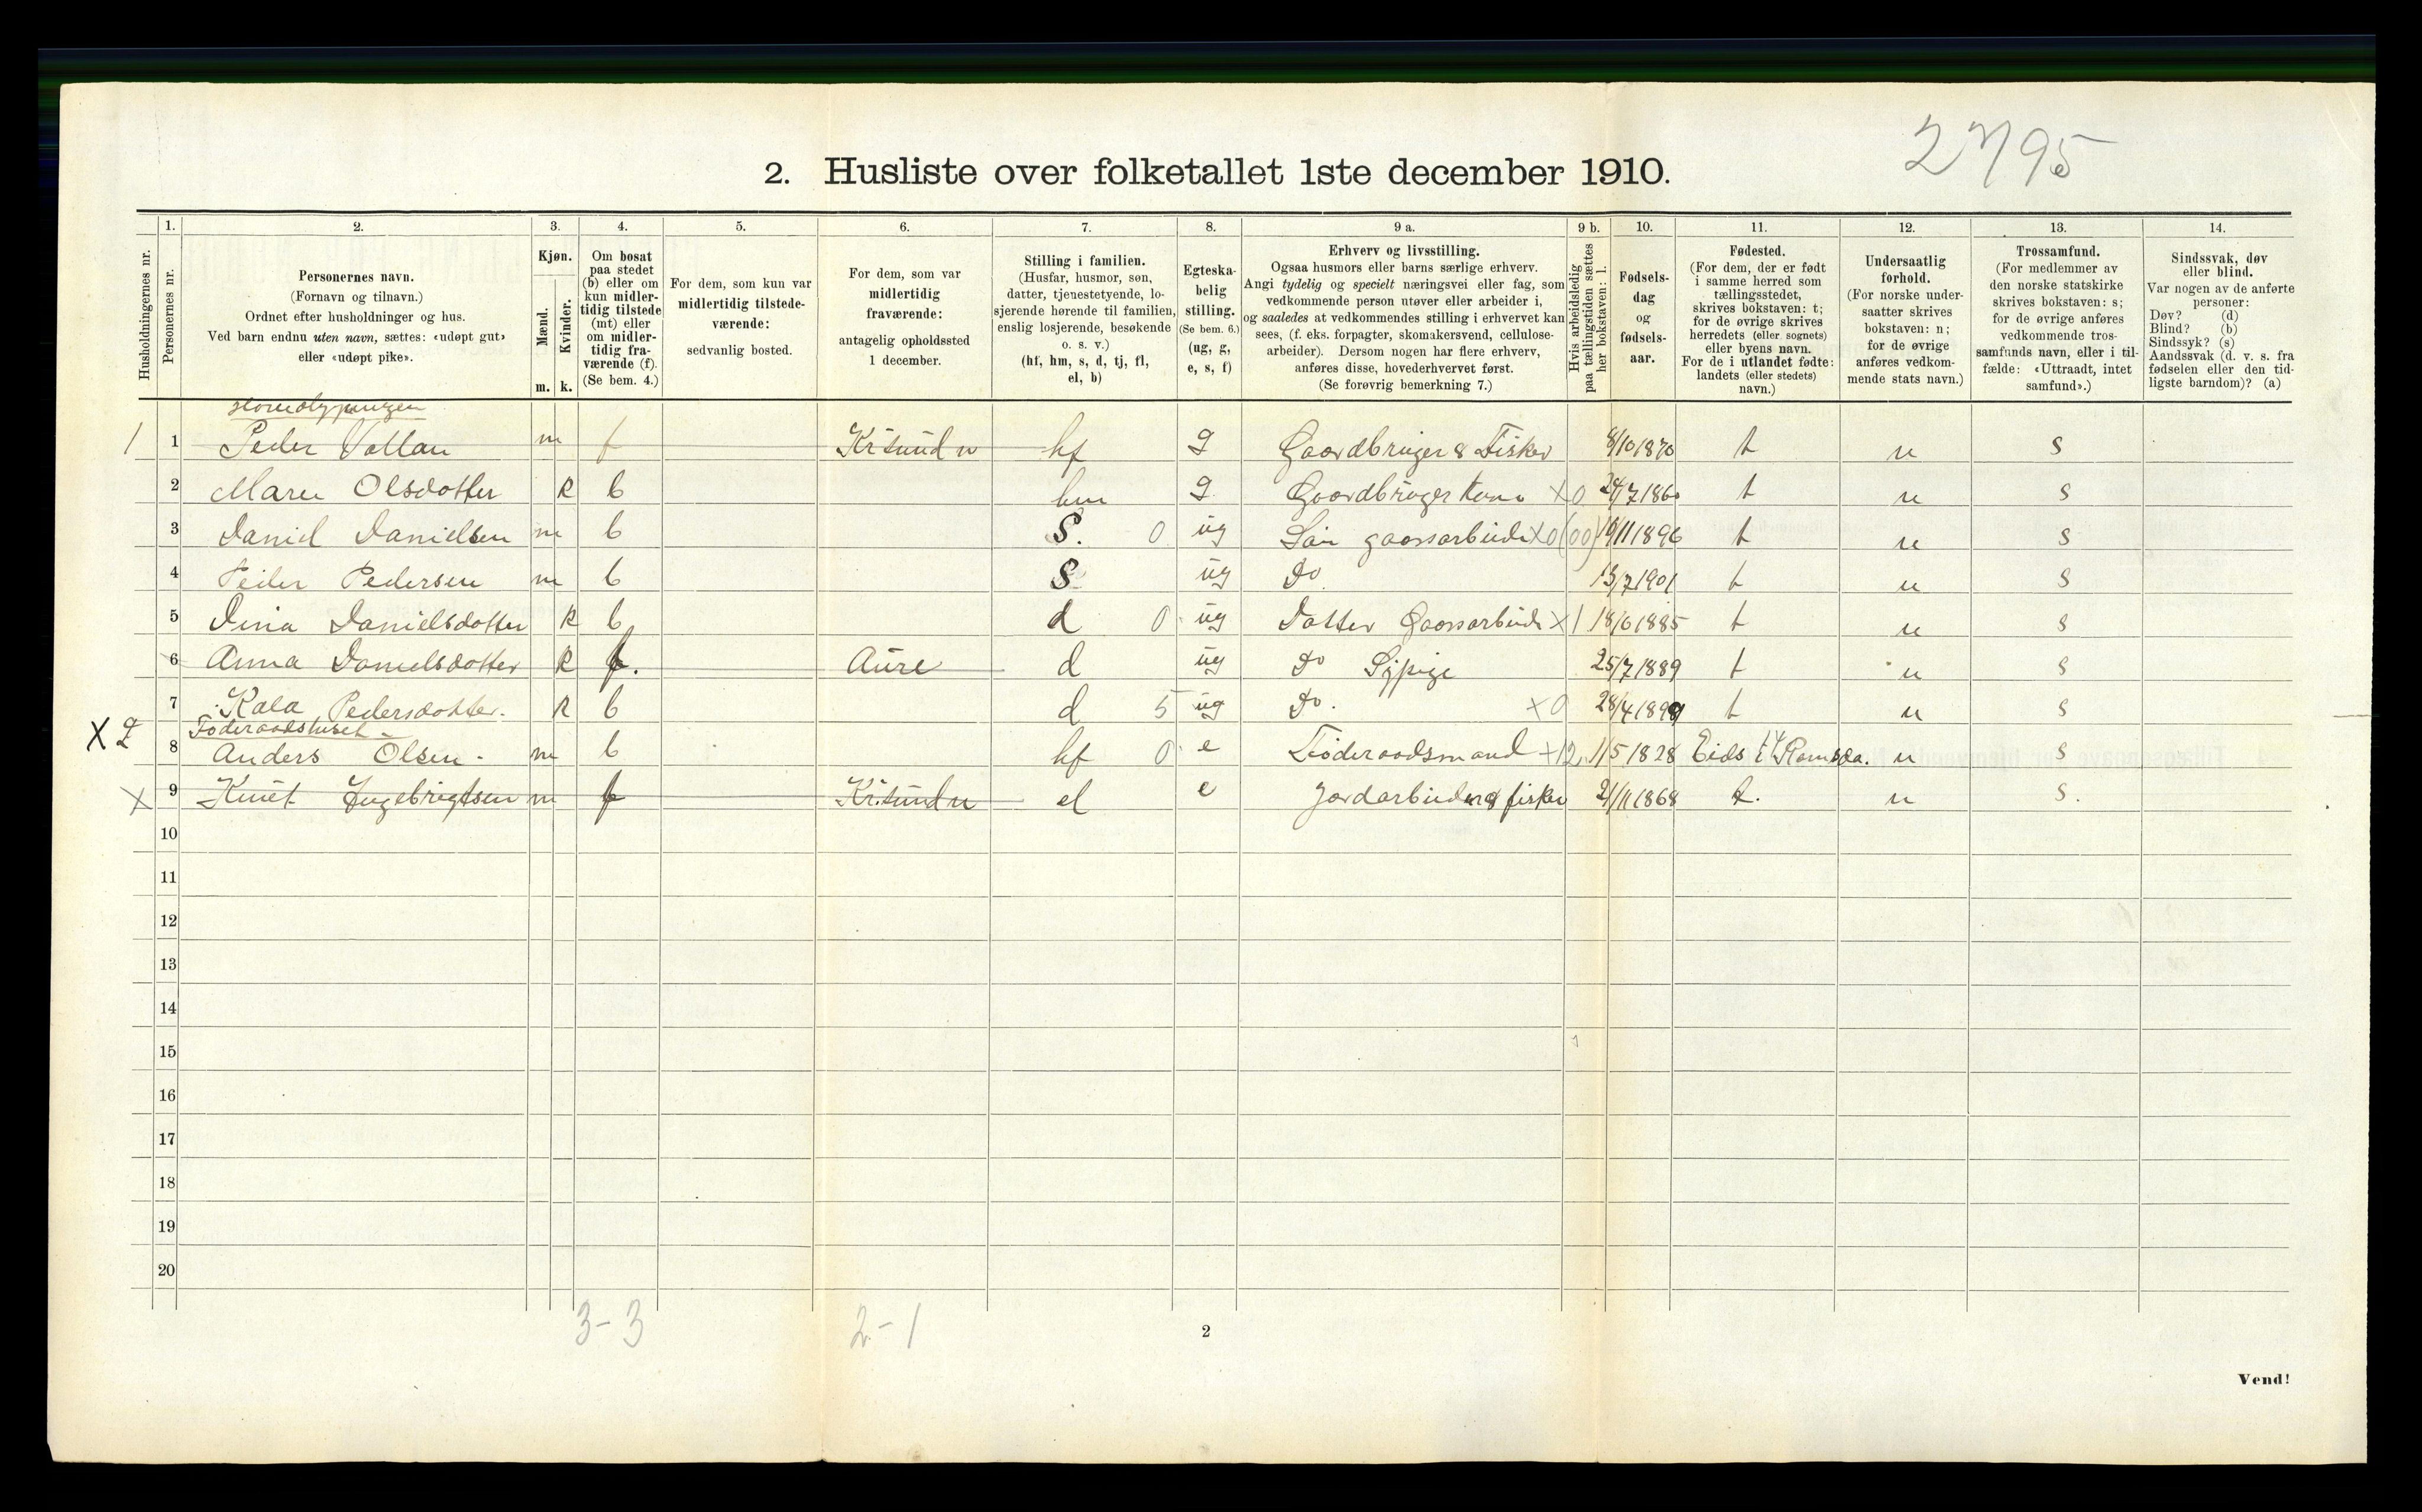 2795
2. Husliste over folketallet 1ste december 1910.
1. 2. 3. 4. 5. 6. 7. 8. 9 a. 9 b. 10. 11. 12. 13. 14.
Husholdningernes nr.
Personernes nr.
Personernes navn.
(Fornavn og tilnavn.)
Ordnet efter husholdninger og hus.
Ved barn endnu uten navn, sættes: «udøpt gut»
eller «udøpt pike».
Kjøn.
Mænd.
Kvinder.
m. k.
Om bosat
paa stedet
(b) eller om
kun midler-
tidig tilstede
(mt) eller
om midler-
tidig fra-
værende (f).
(Se bem. 4.)
For dem, som kun var
midlertidig tilstede-
værende:
sedvanlig bosted.
For dem, som var
midlertidig
fraværende:
antagelig opholdssted
1 december.
Stilling i familien.
(Husfar, husmor, søn,
datter, tjenestetyende, lo-
sjerende hørende til familien,
enslig losjerende, besøkende
o. s. v.)
(hf, hm, s, d, tj, fl,
el, b)
Egteska-
belig
stilling.
(Se bem. 6.)
(ug, g,
e, s, f)
Erhverv og livsstilling.
Ogsaa husmors eller barns særlige erhverv.
Angi tydelig og specielt næringsvei eller fag, som
vedkommende person utøver eller arbeider i,
og saaledes at vedkommendes stilling i erhvervet kan
sees, (f. eks. forpagter, skomakersvend, cellulose-
arbeider). Dersom nogen har flere erhverv,
anføres disse, hovederhvervet først.
(Se forøvrig bemerkning 7.)
Hvis arbeidsledig
paa tællingstiden sættes
her bokstaven: l.
Fødsels-
dag
og
fødsels-
aar.
Fødested.
(For dem, der er født
i samme herred som
tællingsstedet,
skrives bokstaven: t;
for de øvrige skrives
herredets (eller sognets)
eller byens navn.
For de i utlandet fødte:
landets (eller stedets)
navn.)
Undersaatlig
forhold.
(For norske under-
saatter skrives
bokstaven: n;
for de øvrige
anføres vedkom-
mende stats navn.)
Trossamfund.
(For medlemmer av
den norske statskirke
skrives bokstaven: s;
for de øvrige anføres
vedkommende tros-
samfunds navn, eller i til-
fælde: «Uttraadt, intet
samfund».)
Sindssvak, døv
eller blind.
Var nogen av de anførte
personer:
Døv? (d)
Blind? (b)
Sindssyk? (s)
Aandssvak (d. v. s. fra
fødselen eller den tid-
ligste barndom)? (a)
1 1 Peder Vollan m f Krisund n hf g Gaardbruger & Fisker 8/10 1870 t n s
2 Maren Olsdotter k b hm g Gaardbruger kone X0 24/7 186 t n s
3 Daniel Danielsen m b S. 0 ug Søn gaarsarbeide X0(00) 16/11 1896 t n s
4 Peder Pedersen m b S ug Do 13/7 1901 t n s
5 Dina Danielsdotter k b d 0 ug Datter Gaarsarbeide X1 18/6 1885 t n s
6 Anna Danielsdotter k f. Aure d ug Do Sypige 25/7 1889 t n s
7 Kala Pedersdotter. k b d 5 ug Do. X0 28/4 1899 t n s
Føderaadshuset
X 2 8 Anders Olsen m b hf 0 e Føderaadsmand 1/5 1828 Eids Romsda. n s
X 9 Knut Ingebrigtsen m f Kr.sund n el e Jordarbeider & fisker 21/11 1868 t. n s.
10
11
12
13
14
15
16
17
18
19
20
3-3 2-1
2
Vend!